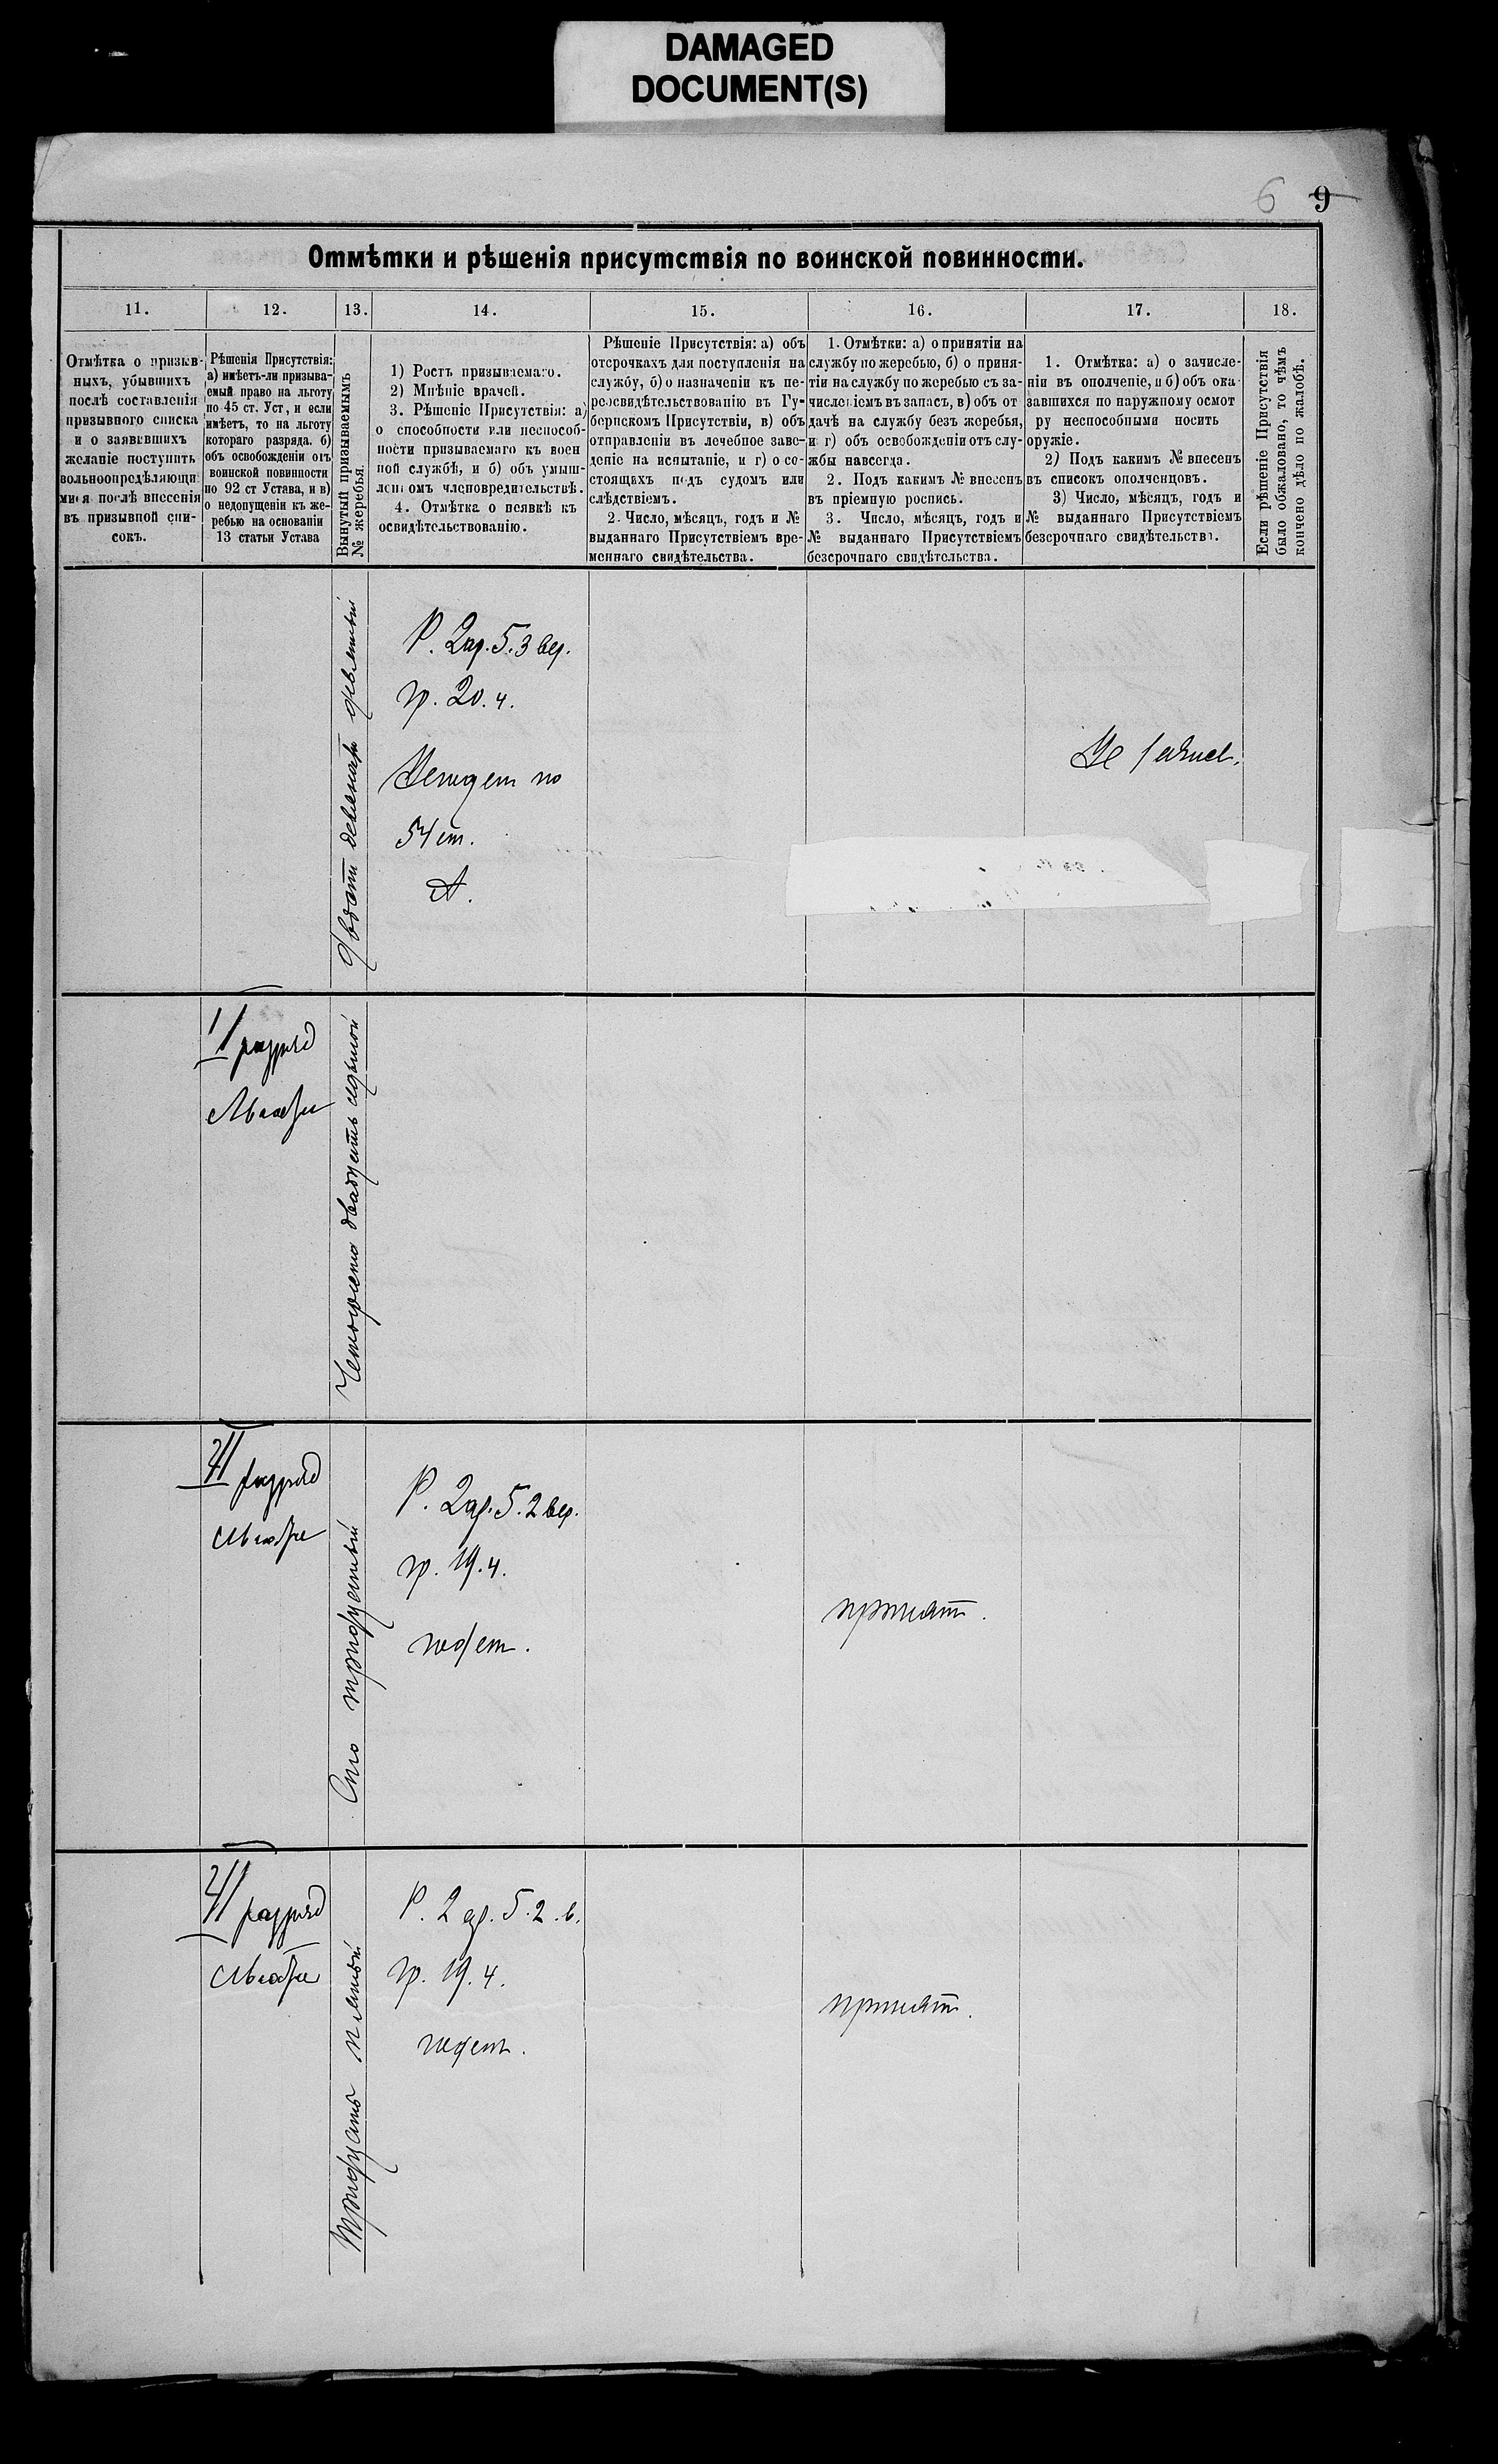 DAMAGED
DOCUMENT(S)
6 9
Отмѣтки и рѣшенія присутствія по воинской повинности.
11. 12. 13. 14. 15. 16. 17. 18.
Отмѣтка о призыв-
ныхъ, убывшихъ
послѣ составленія
призывного списка
и о заявившихъ
желаніе поступить
вольноопредѣляющи
мися послѣ внесенія
въ призывной спи-
сокъ.
Рѣшенія Присутствія:
а) имѣетъ-ли призыва-
емый право на льготу
по 45 ст. Уст, и если
имѣетъ, то на льготу
котораго разряда. б)
объ освобожденіи отъ
воинской повинности
по 92 ст Устава, и в)
о недопущеніи къ же-
ребью на основаніи
13 статьи Устава
Вынутый призываемымъ
№ жеребья.
1) Ростъ призываемаго.
2) Мнѣніе врачей.
3. Рѣшеніе Присутствія: а)
о способности или неспособ-
ности призываемаго къ воен
ной службѣ, и б) объ умыш-
леномъ членовредительствѣ.
4. Отмѣтка о неявкѣ къ
освидѣтельствованію.
Рѣшеніе Присутствія: а) объ
отсрочкахъ для поступленія на
службу, б) о назначеніи къ пе-
реосвидѣтельствованію въ Гу-
бернскомъ Присутствіи, в) объ
отправленіи въ лечебное заве-
деніе на испытаніе, и г) о со-
стоящихъ подъ судомъ или
слѣдствіемъ.
2. Число, мѣсяцъ, годъ и №
выданнаго Присутствіемъ вре-
меннаго свидѣтельства.
1. Отмѣтки: а) о принятіи на
службу по жеребью, б) о приня-
тіи на службу по жеребью съ за-
численіемъ въ запасъ, в) объ от
дачѣ на службу безъ жеребья,
и г) объ освобожденіи отъ слу-
жбы навсегда.
2. Подъ какимъ № внесенъ
въ пріемную роспись.
3. Число, мѣсяцъ, годъ и
№ выданнаго Присутствіемъ
безсрочнаго свидѣтельства.
1. Отмѣтка: а) о зачисле-
ніи въ ополченіе, и б) объ ока-
завшихся по наружному осмот
ру неспособными носить
оружіе.
2) Подъ какимъ № внесенъ
въ списокъ ополченцовъ.
3) Число, мѣсяцъ, годъ и
№ выданнаго Присутствіемъ
безсрочнаго свидѣтельства.
Если рѣшеніе Присутствія
было обжаловано, то чѣмъ
кончено дѣло по жалобѣ.
Р. 2ар. 5.3 вер.
гр. 20.ч.
54 ст.
II разряд
Четыреста двадцать седьмой
III разряд
Сто тридцатый
Р. 2ар. 5.2 вер.
гр. 19.ч.
годен.
принят.
III разряд
Тридцать пятый
Р. 2 ар. 5.2.в.
гр. 19.ч.
годен.
принят.